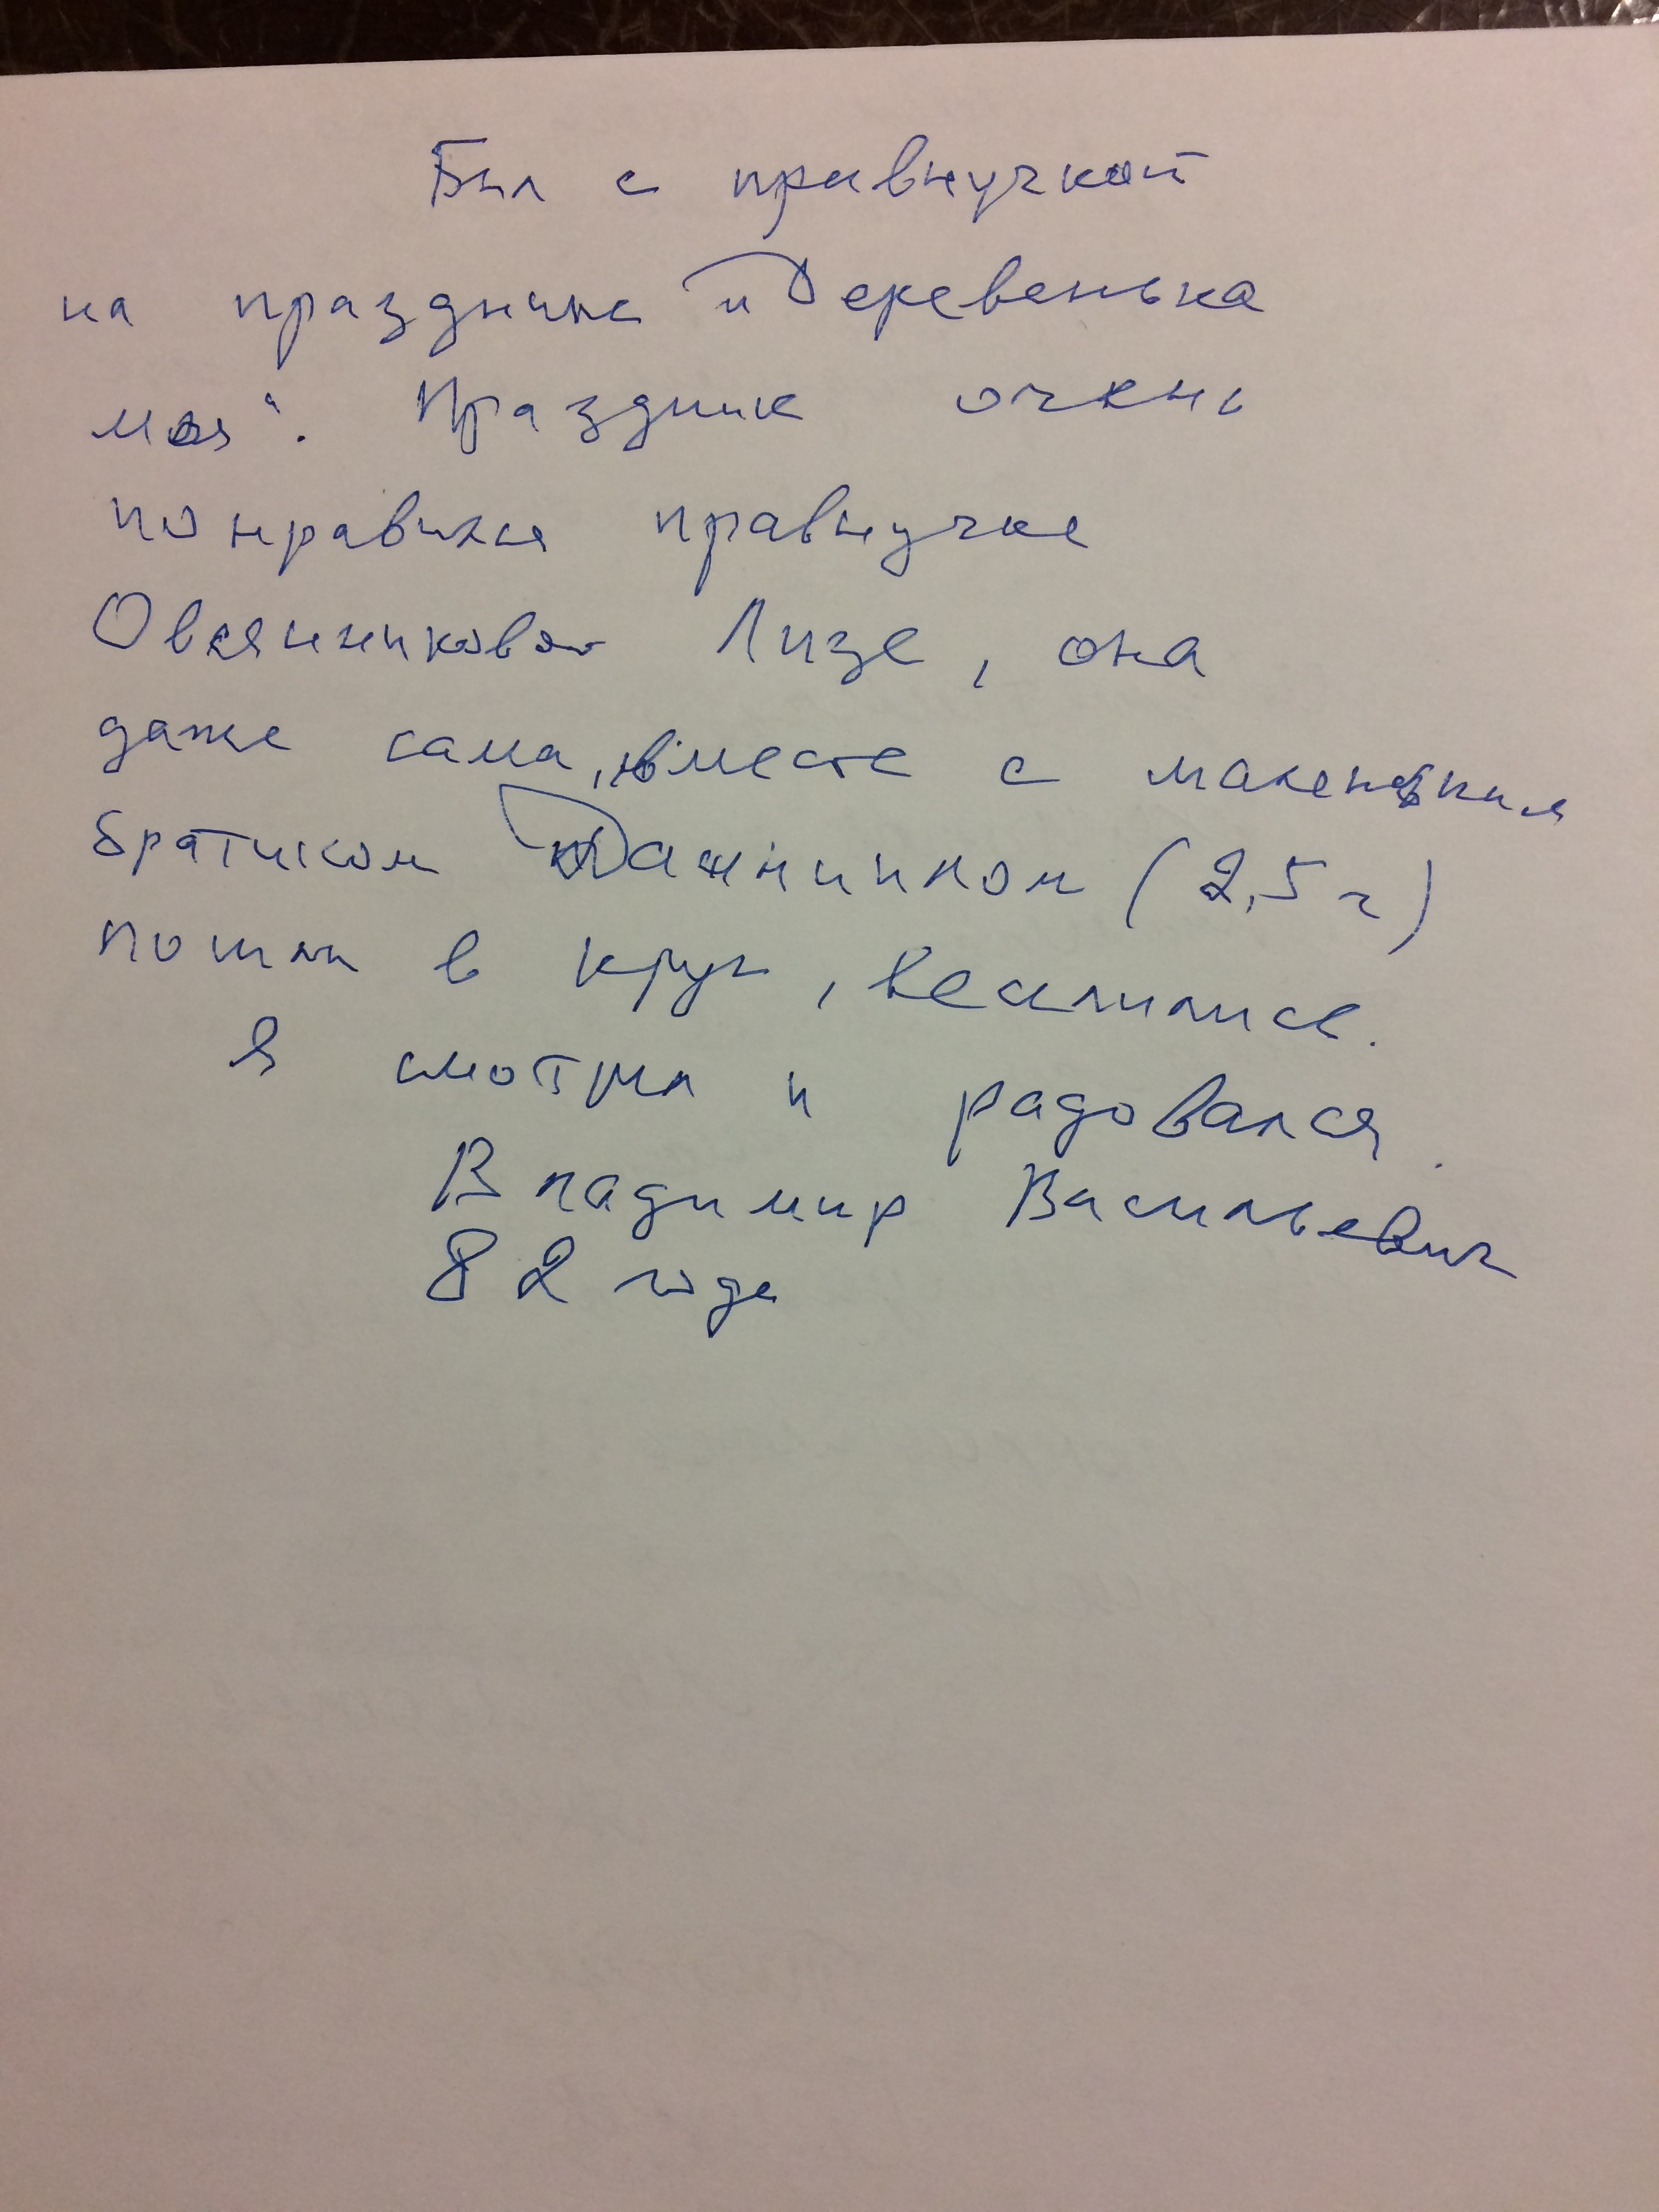 Был с правнучкой
на празднике "Деревенька
моя". Праздник очень
понравился правнучке
Овсянниковой Лизе, она
даже сама, вместе с маленьким
братиком (2,5 г)
пошли в круг, веселились.
Я смотрел и радовался.
Владимир Васильевич
82 года